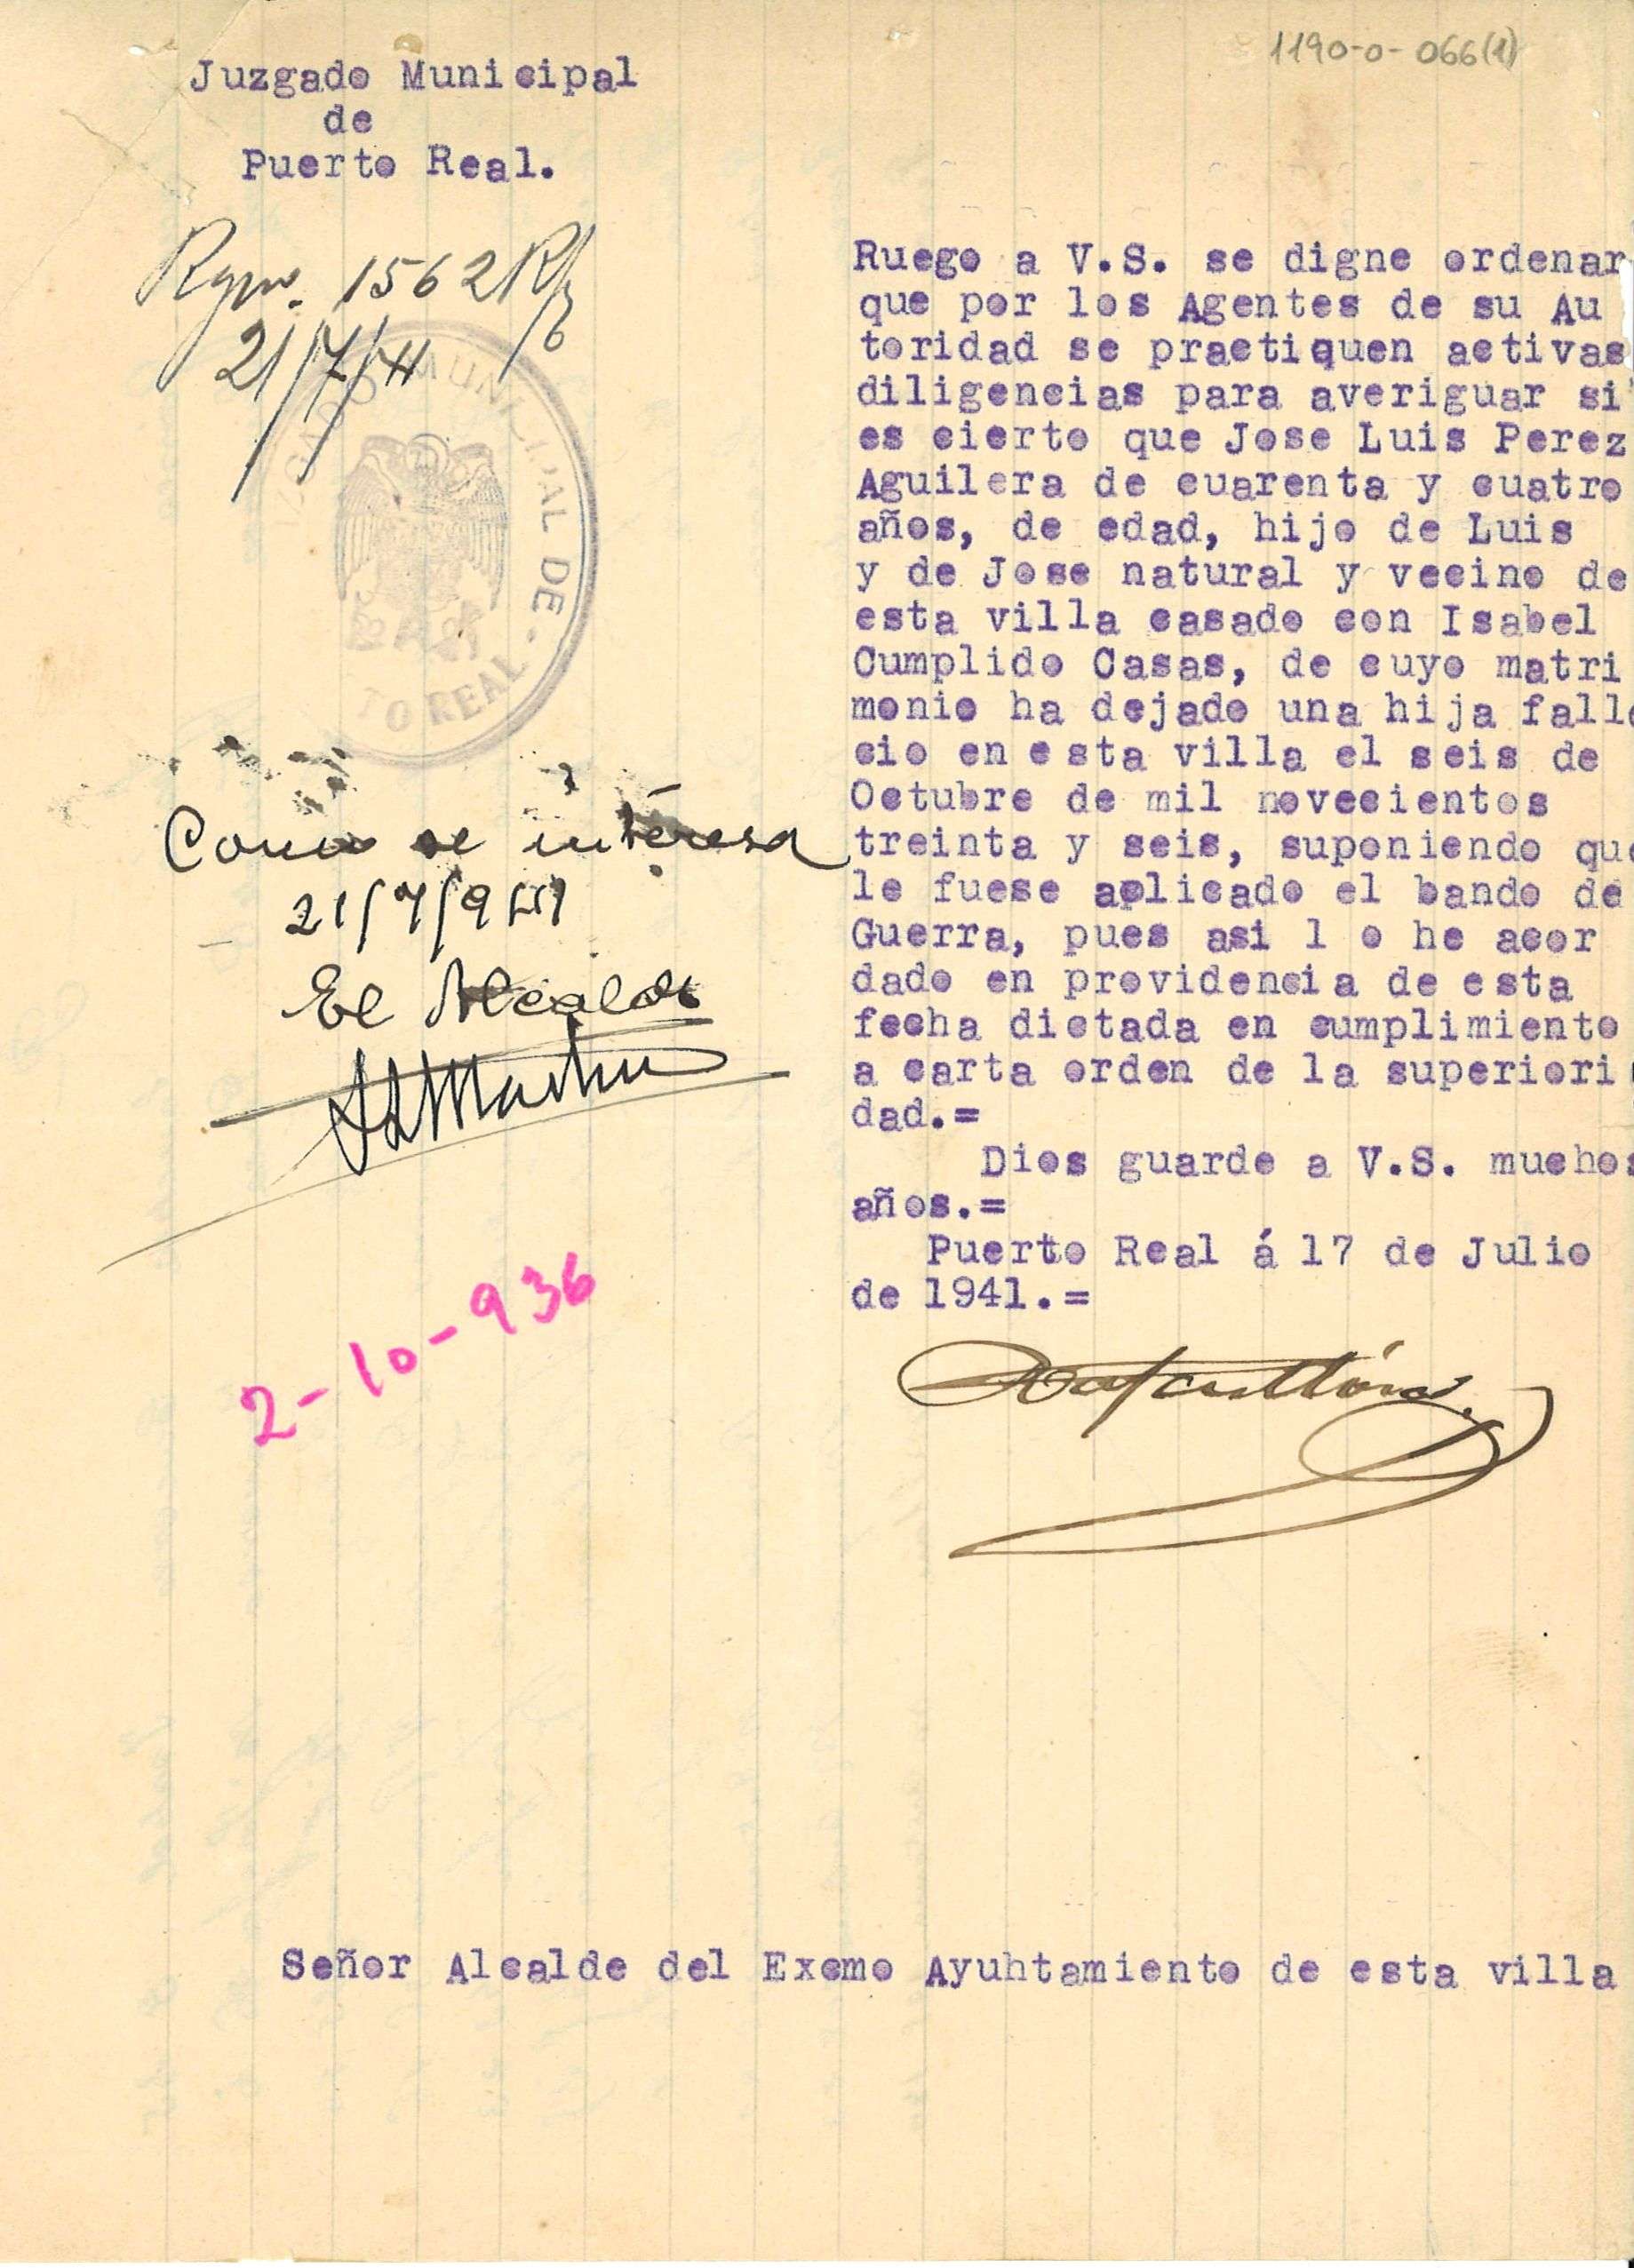 1190-0-066(1)
Juzgado Municipal
de
Puerto Real.
1562
21/7/41
MUNICIPAL DE
TO REAL
Como se interesa
21/7/941
El Alcalde
2-10-936
Ruego a V.S. se digne ordenar
que por los Agentes de su Au
toridad se practiquen activas
diligencias para averiguar si
es cierto que Jose Luis Perez
Aguilera de cuarenta y cuatro
años, de edad, hijo de Luis
y de Jose natural y vecino de
esta villa casado con Isabel
Cumplido Casas, de cuyo matri
monio ha dejado una hija falle
cio en esta villa el seis de
Octubre de mil novecientos
treinta y seis, suponiendo que
le fuese aplicado el bando de
Guerra, pues asi l o he acor
dado en providencia de esta
fecha dictada en cumplimiento
a carta orden de la superiori
dad.=
Dios guarde a V.S. muchos
años.=
Puerto Real á 17 de Julio
de 1941.=
Señor Alcalde del Excmo Ayuhtamiento de esta villa